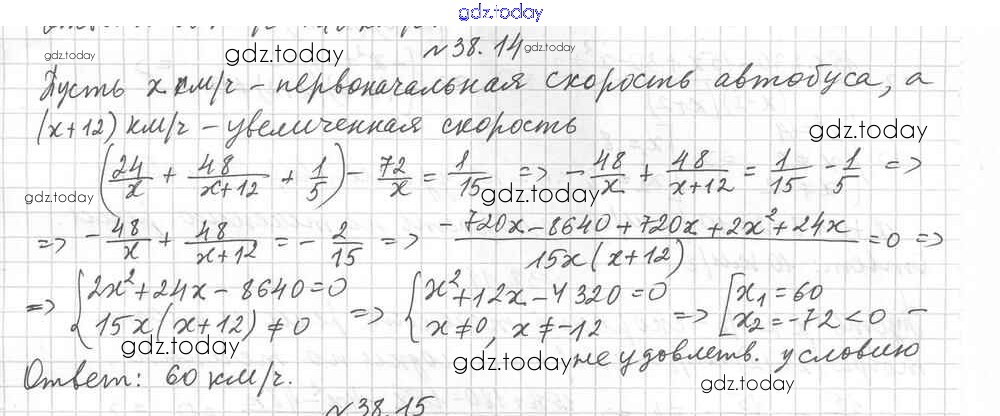 gdz.today
gdz.today gdz.today №38.14 gdz.today
Пусть x км/ч – первоначальная скорость автобуса, а
(x+12) км/ч – увеличенная скорость
gdz.today
(24/x + 48/(x+12) + 1/5) – 72/x = 1/15 => – 48/x + 48/(x+12) = 1/15 – 1/5 =>
gdz.today gdz.today
=> – 48/x + 48/(x+12) = – 2/15 => (–720x – 8640 + 720x + 2x² + 24x)/(15x(x+12)) = 0 =>
=> { 2x² + 24x – 8640 = 0 => { x² + 12x – 4320 = 0 => [ x₁ = 60
15x(x+12) ≠ 0 x ≠ 0, x ≠ –12 x₂ = –72 < 0 –
gdz.today gdz.today не удовлетв. условию
Ответ: 60 км/ч.
gdz.today
№38.15